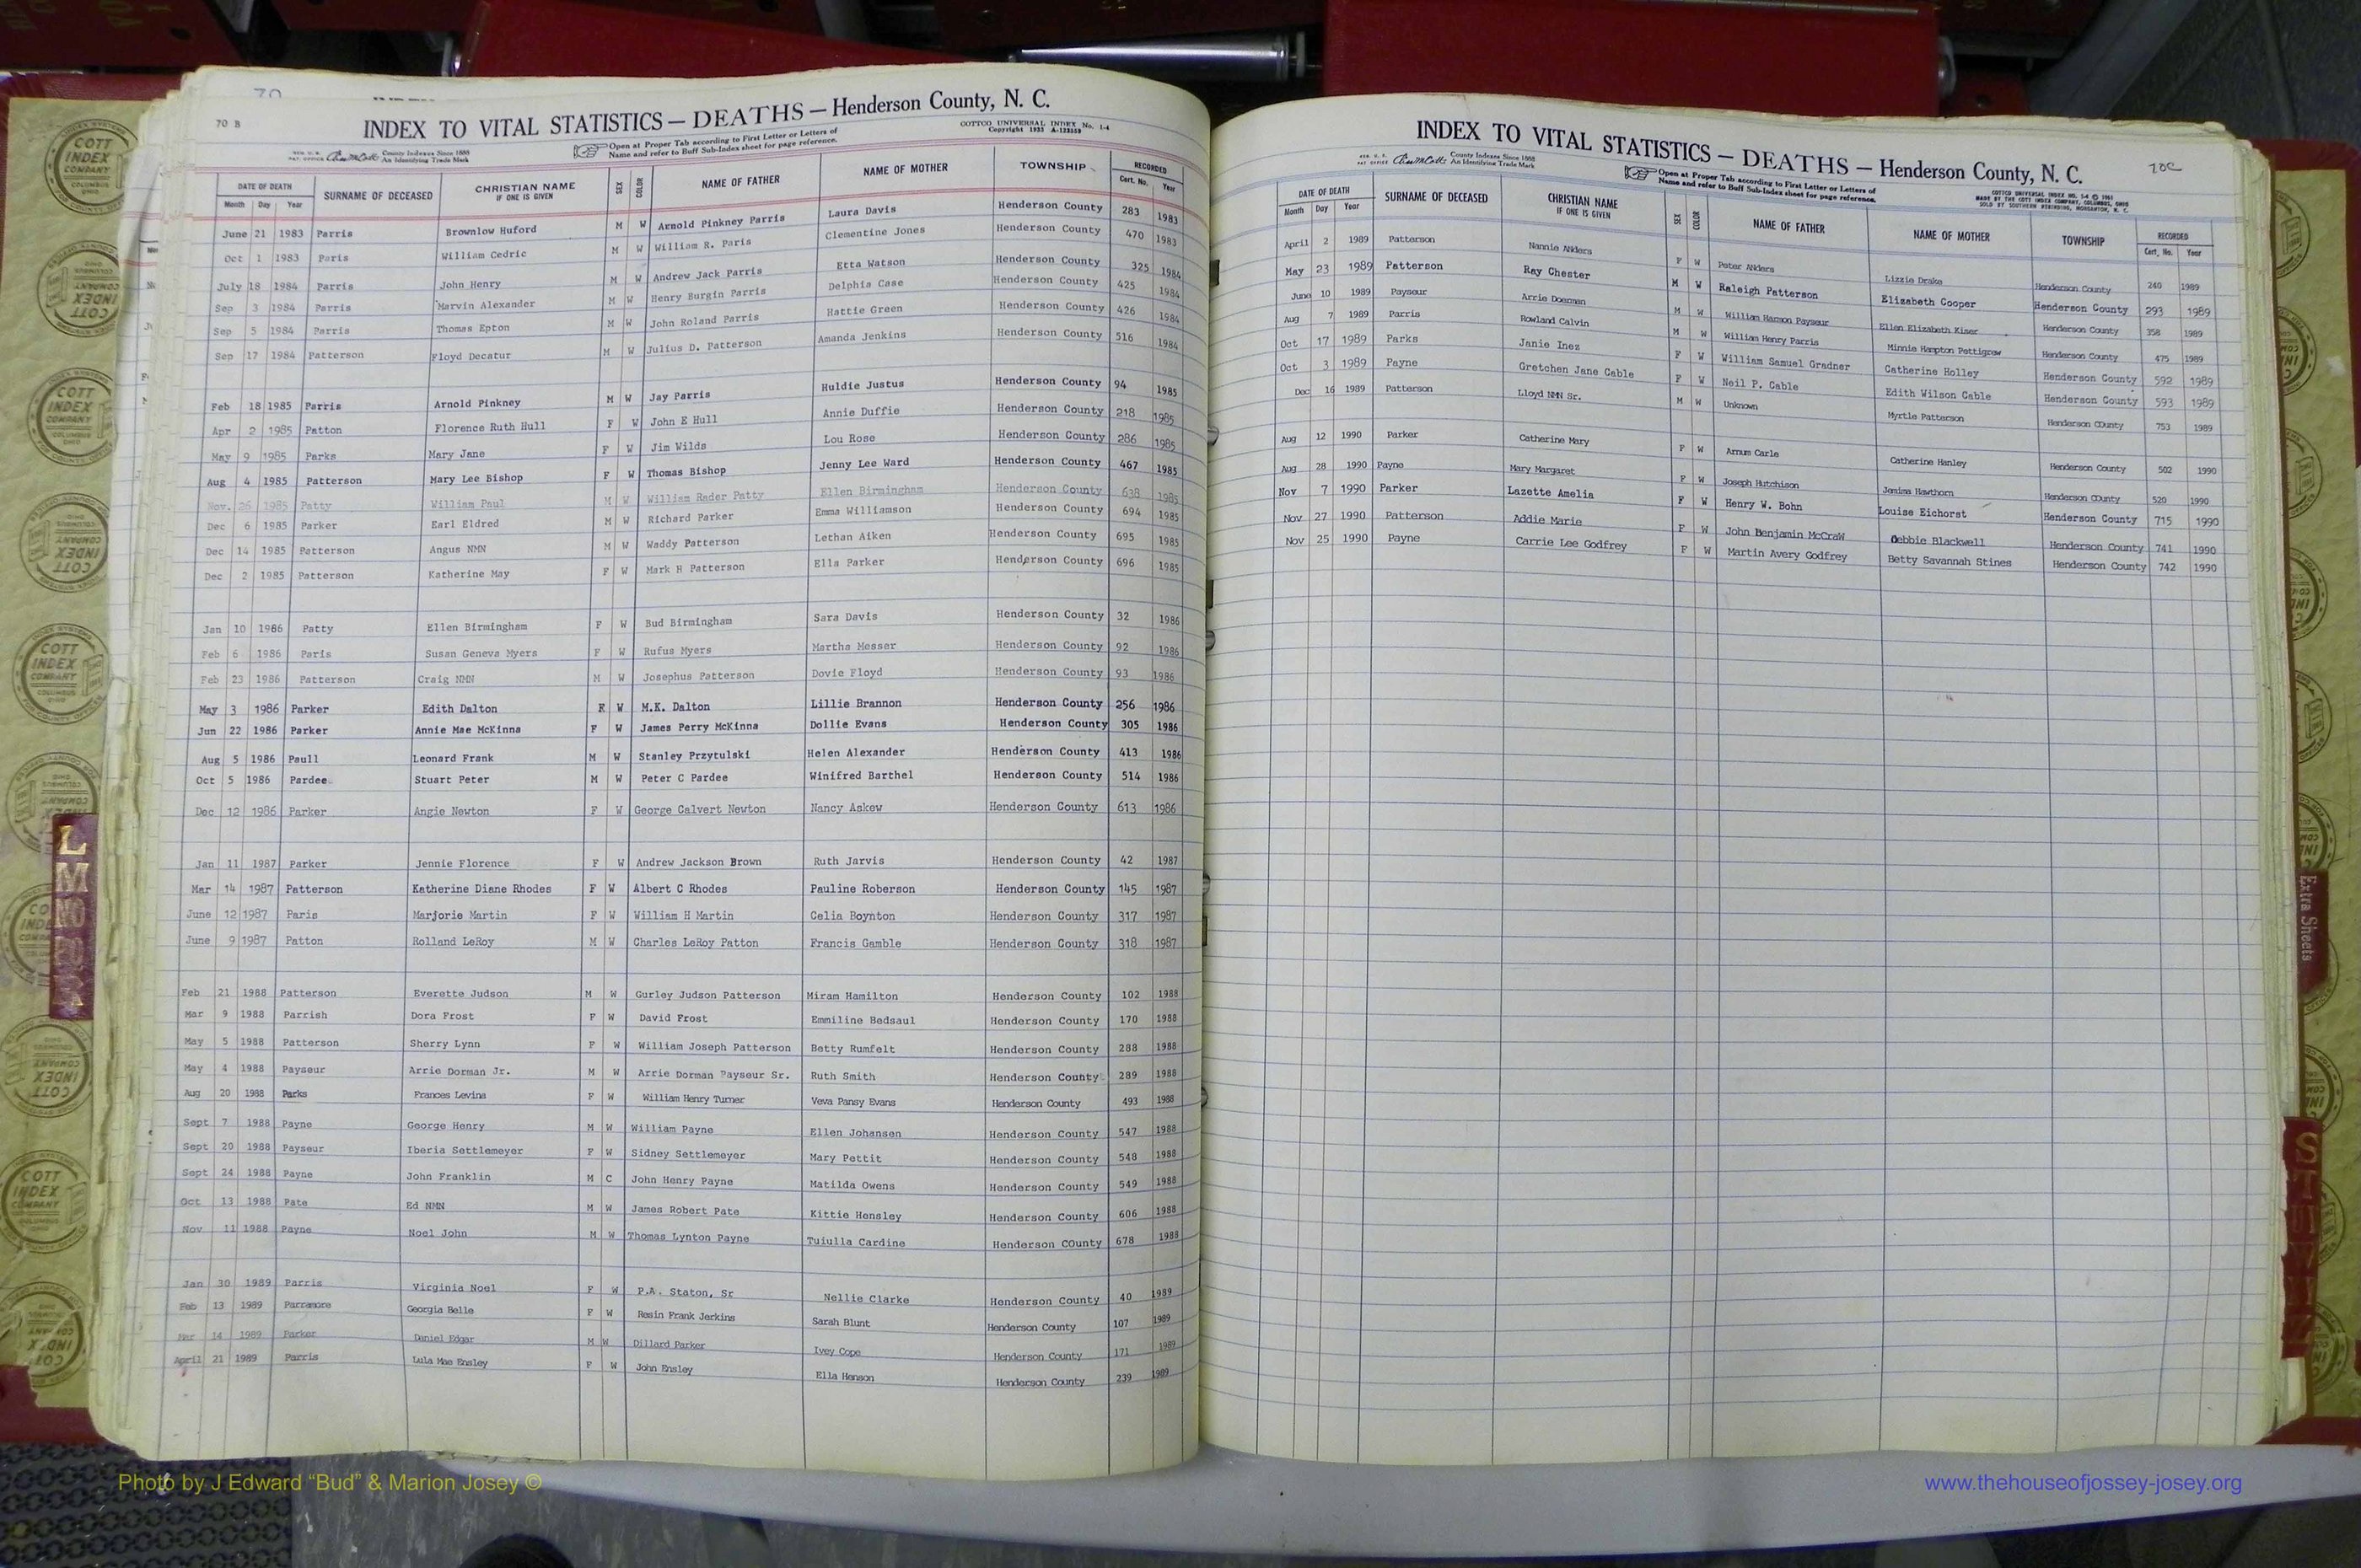 70 B
INDEX TO VITAL STATISTICS — DEATHS — Henderson County, N. C.
COTTCO UNIVERSAL INDEX No. 1-4
Copyright 1933 A-123359
County Indexes Since 1888
An Identifying Trade Mark
Open at Proper Tab according to First Letter or Letters of
Name and refer to Buff Sub-Index sheet for page reference.
DATE OF DEATH SURNAME OF DECEASED CHRISTIAN NAME IF ONE IS GIVEN SEX COLOR NAME OF FATHER NAME OF MOTHER TOWNSHIP RECORDED
Month Day Year Cert. No. Year
June 21 1983 Parris Brownlow Huford M W Arnold Pinkney Parris Laura Davis Henderson County 283 1983
Oct 1 1983 Paris William Cedric M W William R. Paris Clementine Jones Henderson County 470 1983
July 18 1984 Parris John Henry M W Andrew Jack Parris Etta Watson Henderson County 325 1984
Sep 3 1984 Parris Marvin Alexander M W Henry Burgin Parris Delphia Case Henderson County 425 1984
Sep 5 1984 Parris Thomas Epton M W John Roland Parris Hattie Green Henderson County 426 1984
Sep 17 1984 Patterson Floyd Decatur M W Julius D. Patterson Amanda Jenkins Henderson County 516 1984
Feb 18 1985 Parris Arnold Pinkney M W Jay Parris Huldie Justus Henderson County 94 1985
Apr 2 1985 Patton Florence Ruth Hull F W John E Hull Annie Duffie Henderson County 218 1985
May 9 1985 Parks Mary Jane F W Jim Wilds Lou Rose Henderson County 286 1985
Aug 4 1985 Patterson Mary Lee Bishop F W Thomas Bishop Jenny Lee Ward Henderson County 467 1985
Nov. 26 1985 Patty William Paul M W William Rader Patty Ellen Birmingham Henderson County 638 1985
Dec 6 1985 Parker Earl Eldred M W Richard Parker Emma Williamson Henderson County 694 1985
Dec 14 1985 Patterson Angus NMN M W Waddy Patterson Lethan Aiken Henderson County 695 1985
Dec 2 1985 Patterson Katherine May F W Mark H Patterson Ella Parker Henderson County 696 1985
Jan 10 1986 Patty Ellen Birmingham F W Bud Birmingham Sara Davis Henderson County 32 1986
Feb 6 1986 Paris Susan Geneva Myers F W Rufus Myers Martha Messer Henderson County 92 1986
Feb 23 1986 Patterson Craig NMN M W Josephus Patterson Dovie Floyd Henderson County 93 1986
May 3 1986 Parker Edith Dalton F W M.K. Dalton Lillie Brannon Henderson County 256 1986
Jun 22 1986 Parker Annie Mae McKinna F W James Perry McKinna Dollie Evans Henderson County 305 1986
Aug 5 1986 Paull Leonard Frank M W Stanley Przytulski Helen Alexander Henderson County 413 1986
Oct 5 1986 Pardee Stuart Peter M W Peter C Pardee Winifred Barthel Henderson County 514 1986
Dec 12 1986 Parker Angie Newton F W George Calvert Newton Nancy Askew Henderson County 613 1986
Jan 11 1987 Parker Jennie Florence F W Andrew Jackson Brown Ruth Jarvis Henderson County 42 1987
Mar 14 1987 Patterson Katherine Diane Rhodes F W Albert C Rhodes Pauline Roberson Henderson County 145 1987
June 12 1987 Paris Marjorie Martin F W William H Martin Celia Boynton Henderson County 317 1987
June 9 1987 Patton Rolland LeRoy M W Charles LeRoy Patton Francis Gamble Henderson County 318 1987
Feb 21 1988 Patterson Everette Judson M W Gurley Judson Patterson Miram Hamilton Henderson County 102 1988
Mar 9 1988 Parrish Dora Frost F W David Frost Emmiline Bedsaul Henderson County 170 1988
May 5 1988 Patterson Sherry Lynn F W William Joseph Patterson Betty Rumfelt Henderson County 288 1988
May 4 1988 Payseur Arrie Dorman Jr. M W Arrie Dorman Payseur Sr. Ruth Smith Henderson County 289 1988
Aug 20 1988 Parks Frances Levina F W William Henry Turner Veva Pansy Evans Henderson County 493 1988
Sept 7 1988 Payne George Henry M W William Payne Ellen Johansen Henderson County 547 1988
Sept 20 1988 Payseur Iberia Settlemeyer F W Sidney Settlemeyer Mary Pettit Henderson County 548 1988
Sept 24 1988 Payne John Franklin M C John Henry Payne Matilda Owens Henderson County 549 1988
Oct 13 1988 Pate Ed NMN M W James Robert Pate Kittie Hensley Henderson County 606 1988
Nov 11 1988 Payne Noel John M W Thomas Lynton Payne Tuiulla Cardine Henderson COunty 678 1988
Jan 30 1989 Parris Virginia Noel F W P.A. Staton, Sr Nellie Clarke Henderson County 40 1989
Feb 13 1989 Parramore Georgia Belle F W Resin Frank Jerkins Sarah Blunt Henderson County 107 1989
Mar 14 1989 Parker Daniel Edgar M W Dillard Parker Ivey Cope Henderson County 171 1989
April 21 1989 Parris Lula Mae Ensley F W John Ensley Ella Henson Henderson County 239 1989
70C
INDEX TO VITAL STATISTICS — DEATHS — Henderson County, N. C.
County Indexes Since 1888
An Identifying Trade Mark
Open at Proper Tab according to First Letter or Letters of
Name and refer to Buff Sub-Index sheet for page reference.
COTTCO UNIVERSAL INDEX NO. 1-4 © 1961
MADE BY THE COTT INDEX COMPANY, COLUMBUS, OHIO
SOLD BY SOUTHERN REBINDING, MORGANTON, N. C.
DATE OF DEATH SURNAME OF DECEASED CHRISTIAN NAME IF ONE IS GIVEN SEX COLOR NAME OF FATHER NAME OF MOTHER TOWNSHIP RECORDED
Month Day Year Cert. No. Year
April 2 1989 Patterson Nannie Anders F W Peter Anders Lizzie Drake Henderson County 240 1989
May 23 1989 Patterson Ray Chester M W Raleigh Patterson Elizabeth Cooper Henderson County 293 1989
June 10 1989 Payseur Arrie Dorman M W William Hamson Payseur Ellen Elizabeth Kiser Henderson County 358 1989
Aug 7 1989 Parris Rowland Calvin M W William Henry Parris Minnie Hampton Pettigrew Henderson County 475 1989
Oct 17 1989 Parks Janie Inez F W William Samuel Gradner Catherine Holley Henderson County 592 1989
Oct 3 1989 Payne Gretchen Jane Cable F W Neil P. Cable Edith Wilson Cable Henderson County 593 1989
Dec 16 1989 Patterson Lloyd NMN Sr. M W Unknown Myrtle Patterson Henderson COunty 753 1989
Aug 12 1990 Parker Catherine Mary F W Arnum Carle Catherine Hanley Henderson County 502 1990
Aug 28 1990 Payne Mary Margaret F W Joseph Hutchison Jemima Hawthorn Henderson COunty 520 1990
Nov 7 1990 Parker Lazette Amelia F W Henry W. Bohn Louise Eichorst Henderson County 715 1990
Nov 27 1990 Patterson Addie Marie F W John Benjamin McCraW Debbie Blackwell Henderson County 741 1990
Nov 25 1990 Payne Carrie Lee Godfrey F W Martin Avery Godfrey Betty Savannah Stines Henderson County 742 1990
Extra Sheets
COTT INDEX COMPANY COLUMBUS OHIO
Photo by J Edward “Bud” & Marion Josey ©
www.thehouseofjossey-josey.org